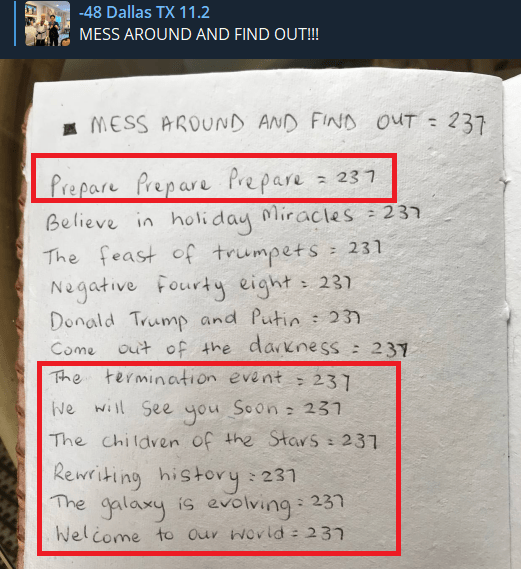 -48 Dallas TX 11.2
MESS AROUND AND FIND OUT!!!
MESS AROUND AND FIND OUT = 237
Prepare Prepare Prepare = 237
Believe in holiday Miracles = 237
The feast of trumpets = 237
Negative Fourty eight = 237
Donald Trump and Putin = 237
Come out of the darkness = 237
The termination event = 237
We will See you Soon = 237
The children of the Stars = 237
Rewriting history = 237
The galaxy is evolving = 237
Welcome to our world = 237